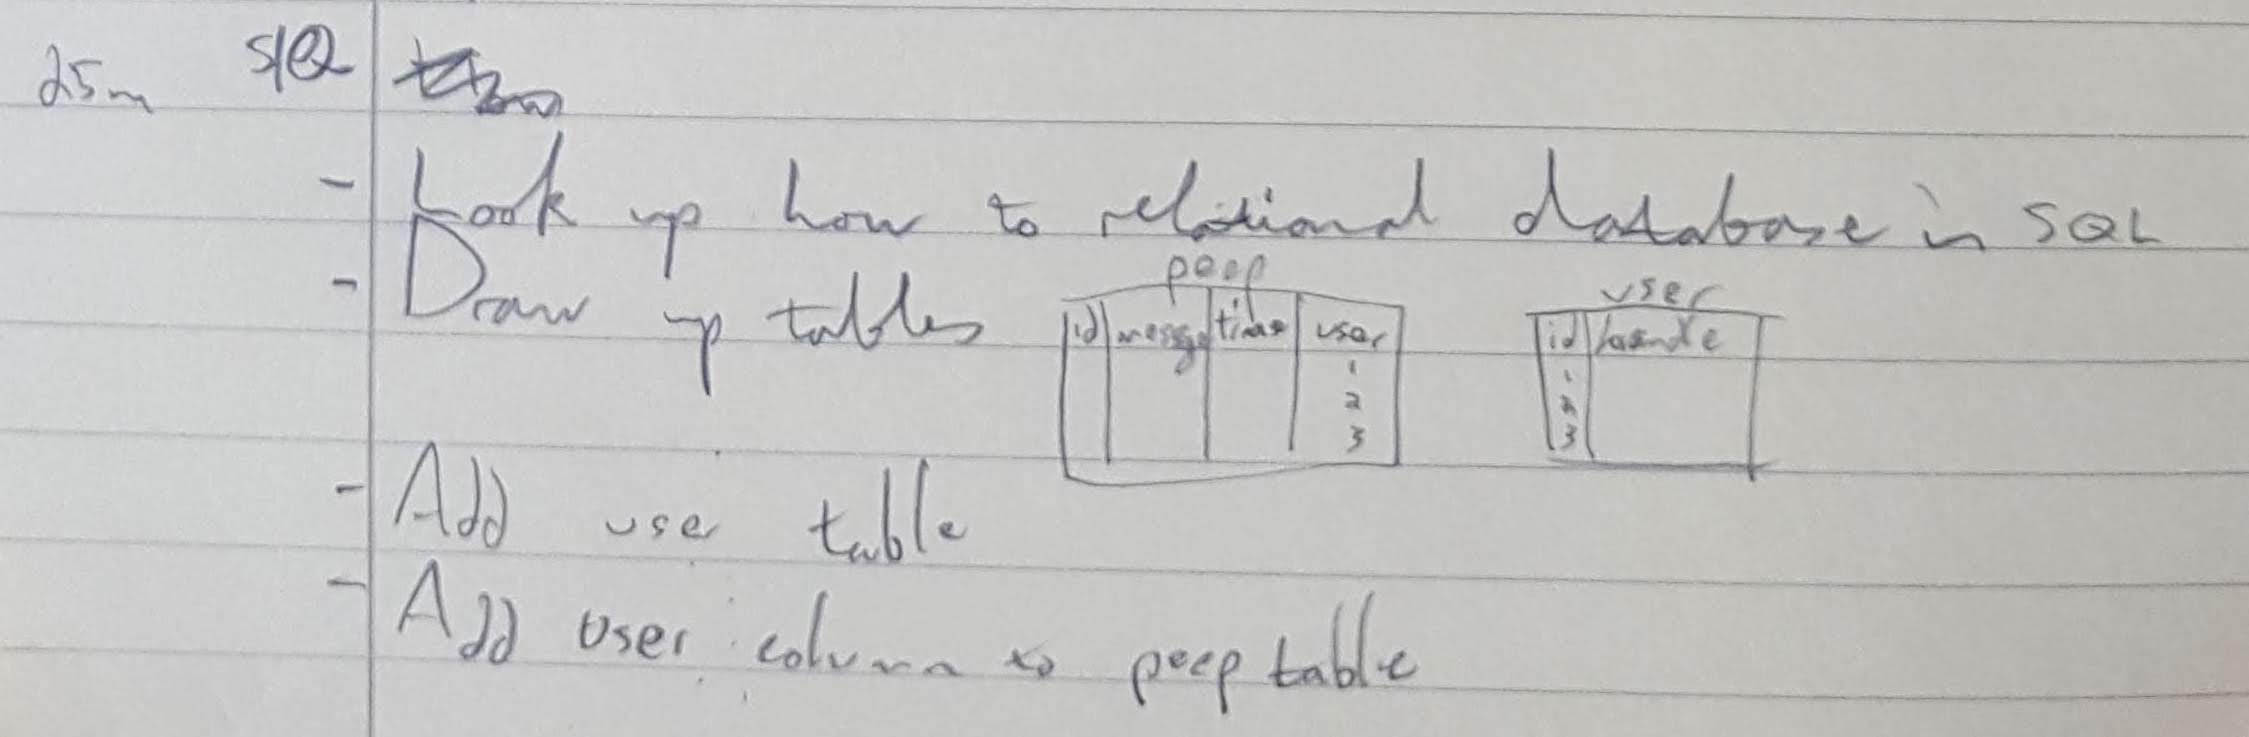 25m
- Look up how to relational database in SQL
- Draw up tables
peep
id message time user
1
2
3
user
id handle
1
2
3
- Add user table
- Add user column to peep table